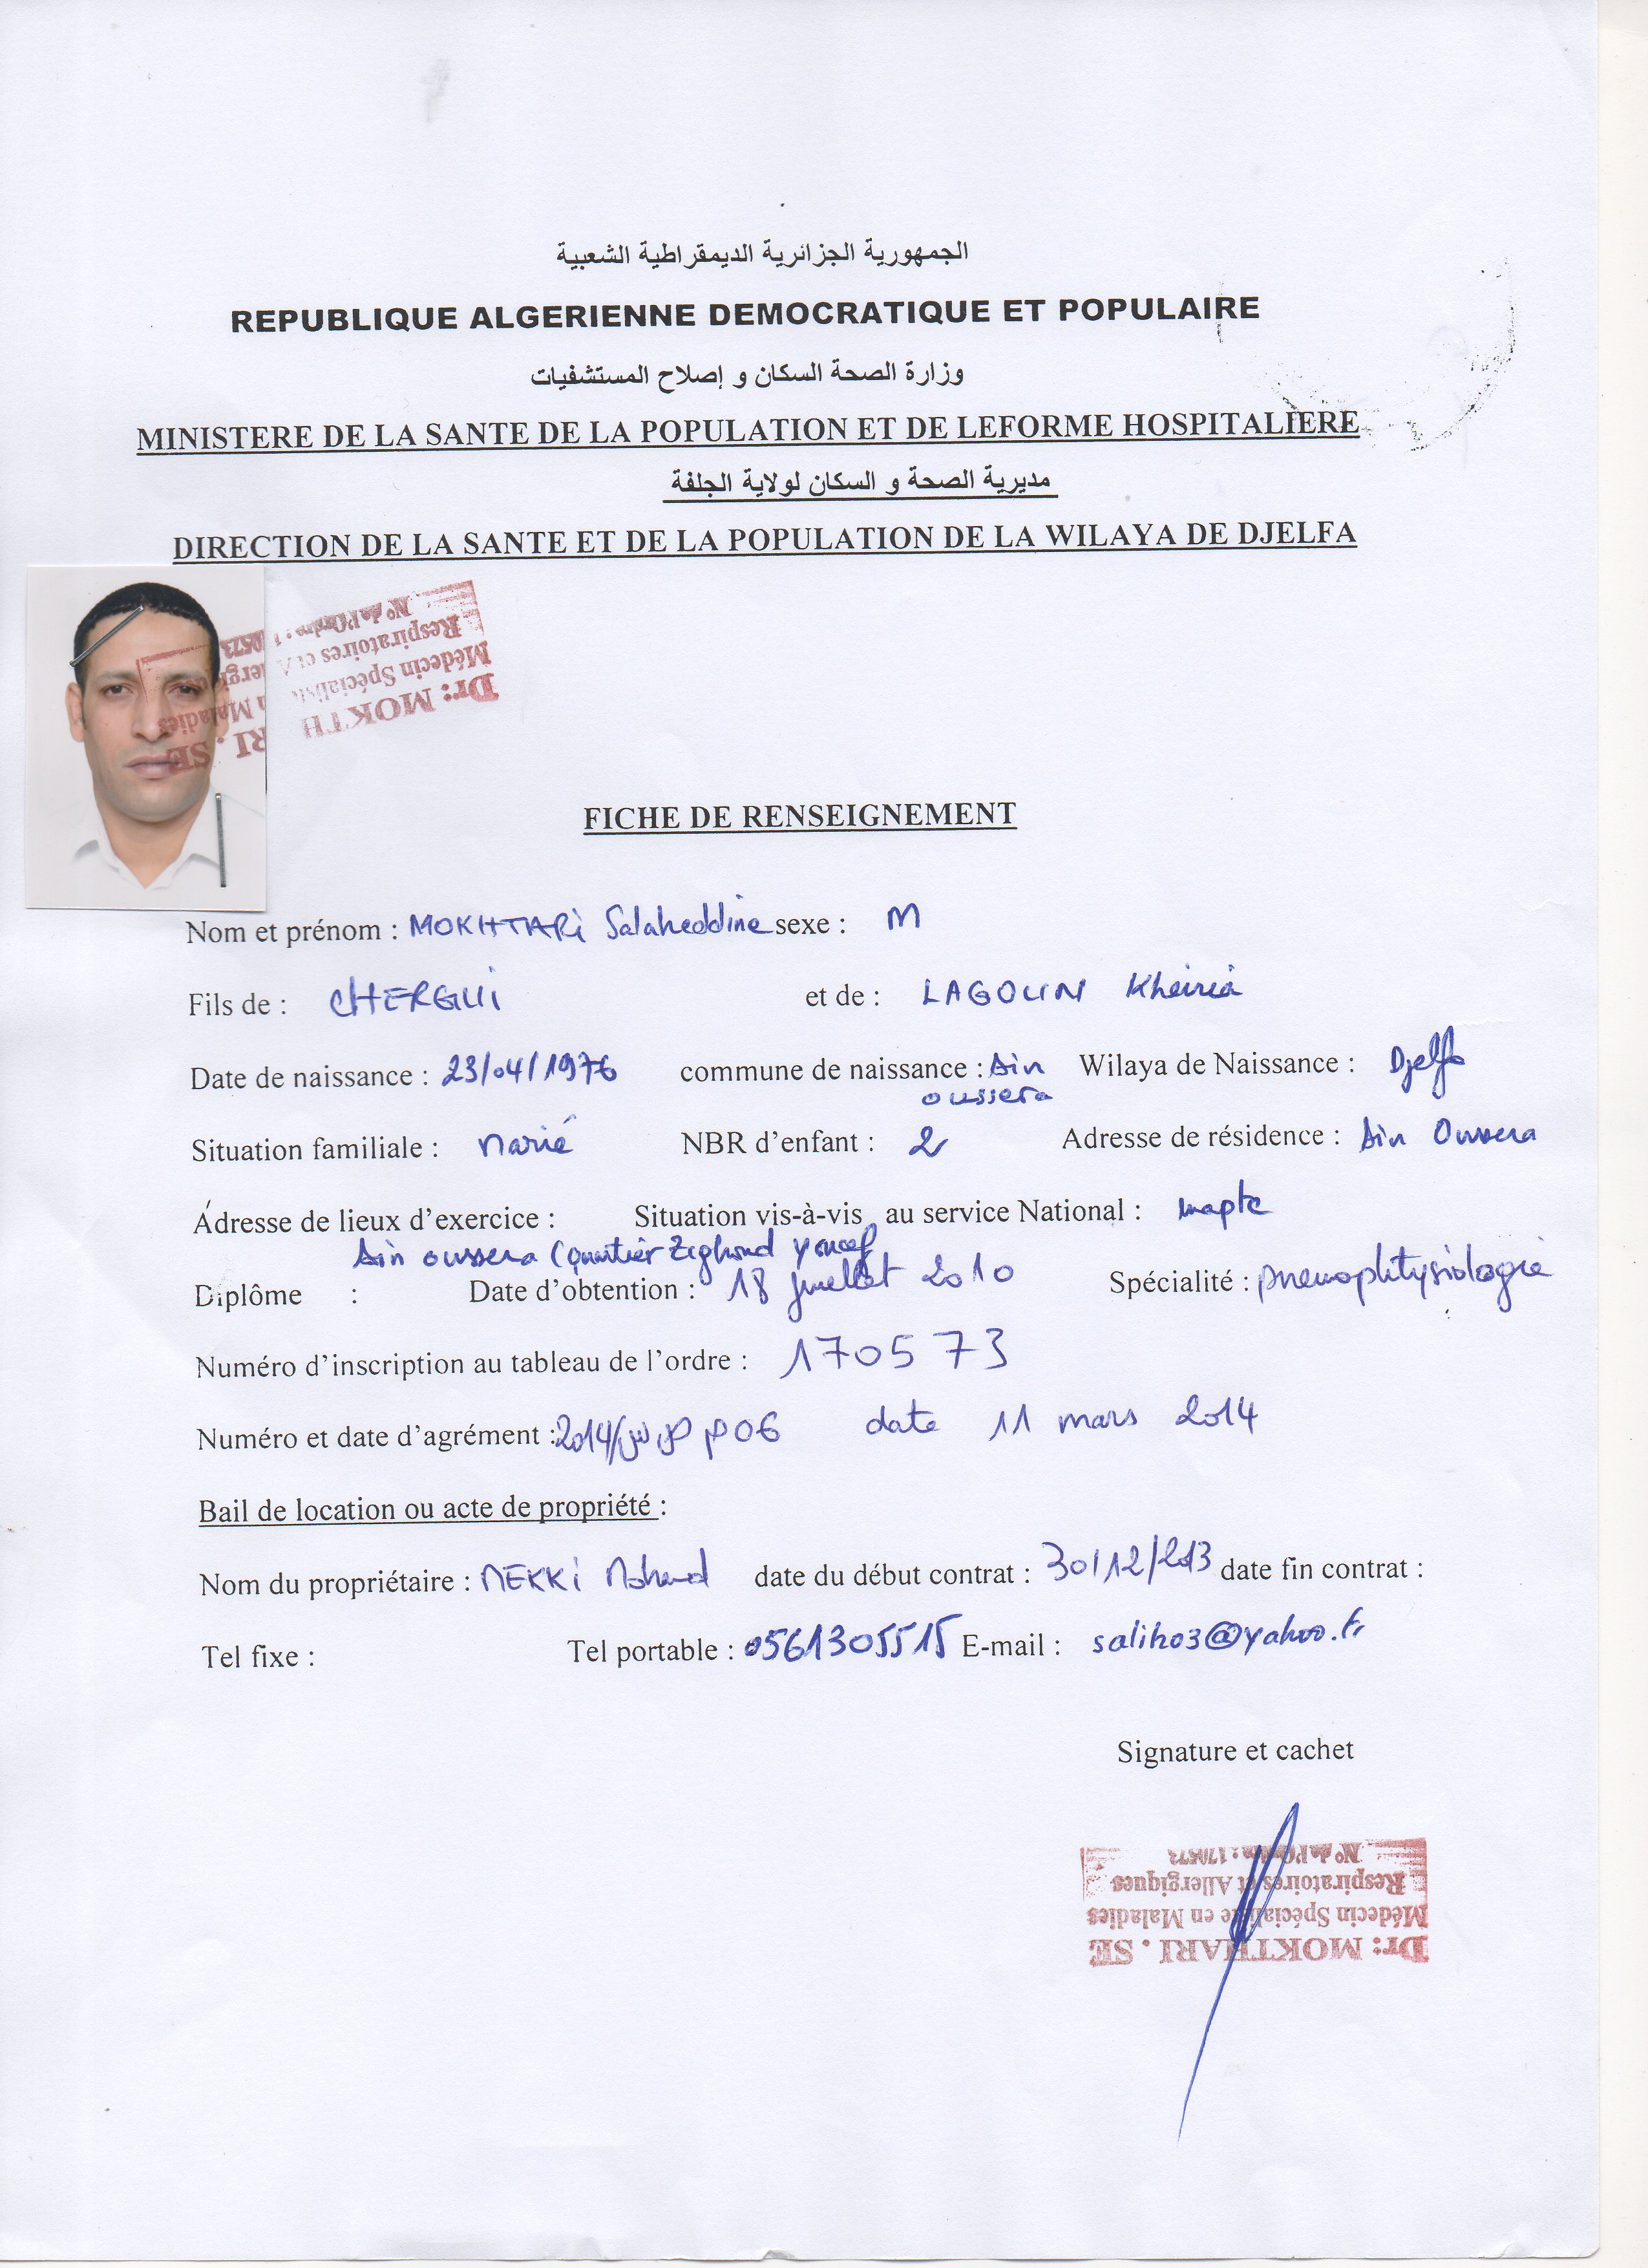 الجمهورية الجزائرية الديمقراطية الشعبية
REPUBLIQUE ALGERIENNE DEMOCRATIQUE ET POPULAIRE
وزارة الصحة السكان و إصلاح المستشفيات
MINISTERE DE LA SANTE DE LA POPULATION ET DE LEFORME HOSPITALIERE
مديرية الصحة و السكان لولاية الجلفة
DIRECTION DE LA SANTE ET DE LA POPULATION DE LA WILAYA DE DJELFA
Dr: MOKTH RI . SE
Médecin Spécialis n Maladies
Respiratoires et A lergi
N° de l'Ordre : 1 70573
FICHE DE RENSEIGNEMENT
Nom et prénom : MOKHTARi Salaheddine sexe : M
Fils de : CHERGUi et de : LAGOUN Kheiria
Date de naissance : 23/04/1976 commune de naissance : Ain oussera Wilaya de Naissance : Djelfa
Situation familiale : Marié NBR d'enfant : 2 Adresse de résidence : Ain Oussera
Adresse de lieux d'exercice : Situation vis-à-vis au service National : inapte
Ain oussera Quartier Zighoud Youcef
Diplôme : Date d'obtention : 18 juillet 2010 Spécialité : pneumophtysiologie
Numéro d'inscription au tableau de l'ordre : 170573
Numéro et date d'agrément : 2014/ 06 date 11 mars 2014
Bail de location ou acte de propriété :
Nom du propriétaire : MEKKi Mohamed date du début contrat : 30/12/2013 date fin contrat :
Tel fixe : Tel portable : 0561305515 E-mail : saliho3@yahoo.fr
Signature et cachet
Dr: MOKTHARI . SE
Médecin Spécialiste en Maladies
Respiratoires et Allergiques
N° de l'Ordre : 170573